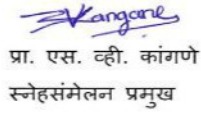 Kangane
प्रा. एस. व्ही. कांगणे
स्नेहसंमेलन प्रमुख